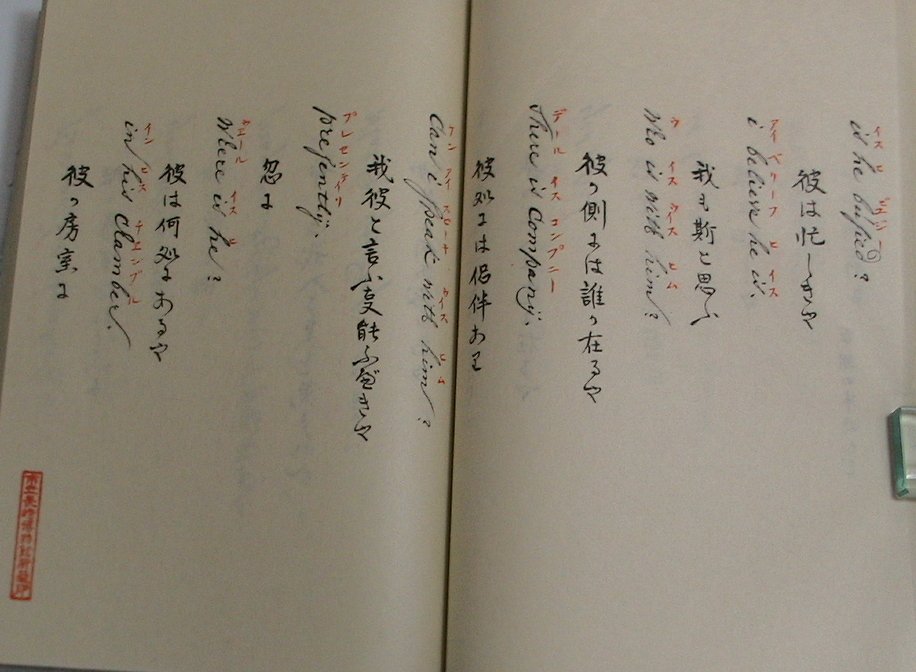 イス ヒ ビュシー
is he busied?
彼は忙しきや
アイ ベリーフ ヒ イス
i believe he is.
我も斯と思ふ
ウ イス ウイス ヒム
Who is with him?
彼の側には誰か在るや
デール イス コンプニー
There is Company,
彼処には侶伴あり
ケン アイ スピーキ ウイス ヒム
Can i speak with him?
我彼と言ふ事能ふべきや
プレセンテリ
presently,
忽に
ウエール イス ヒ
Where is he?
彼は何処にあるや
イン ヒス チエンブル
in his Clamber.
彼の房室に